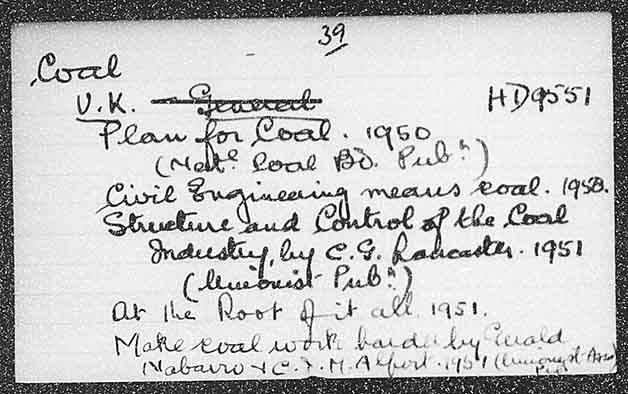 39
Coal
U.K. — General HD9551
Plan for Coal. 1950
(Natl. Coal Bd. Pubn.)
Civil Engineering means coal. 1950.
Structure and Control of the Coal
Industry, by C.G. Lancaster. 1951
(Unionist Pubn.)
At the Root of it all. 1951.
Make coal work harder by Gerald
Nabarro & C.J.M. Alport. 1951 (Unionist Assn